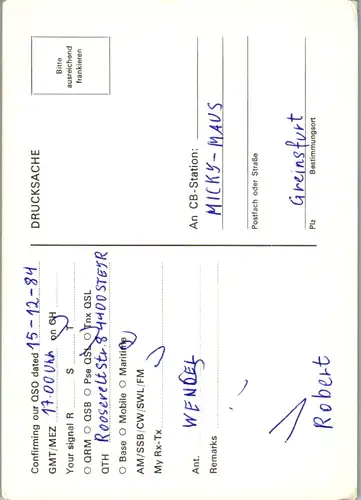 Confirming our QSO dated 15-12-84
GMT/MEZ 17.00 Uhr on CH
Your signal R S T
○ QRM ○ QSB ○ Pse QSL ○ Tnx QSL
QTH Rooseveltstr 8 4400 STEYR
○ Base ○ Mobile ○ Maritime
AM/SSB/CW/SWL/FM
My Rx-Tx
Ant. WENDEL
Remarks
Robert
DRUCKSACHE
Bitte
ausreichend
frankieren
An CB-Station:
MICKY-MAUS
Postfach oder Straße
Greinsfurt
Plz Bestimmungsort